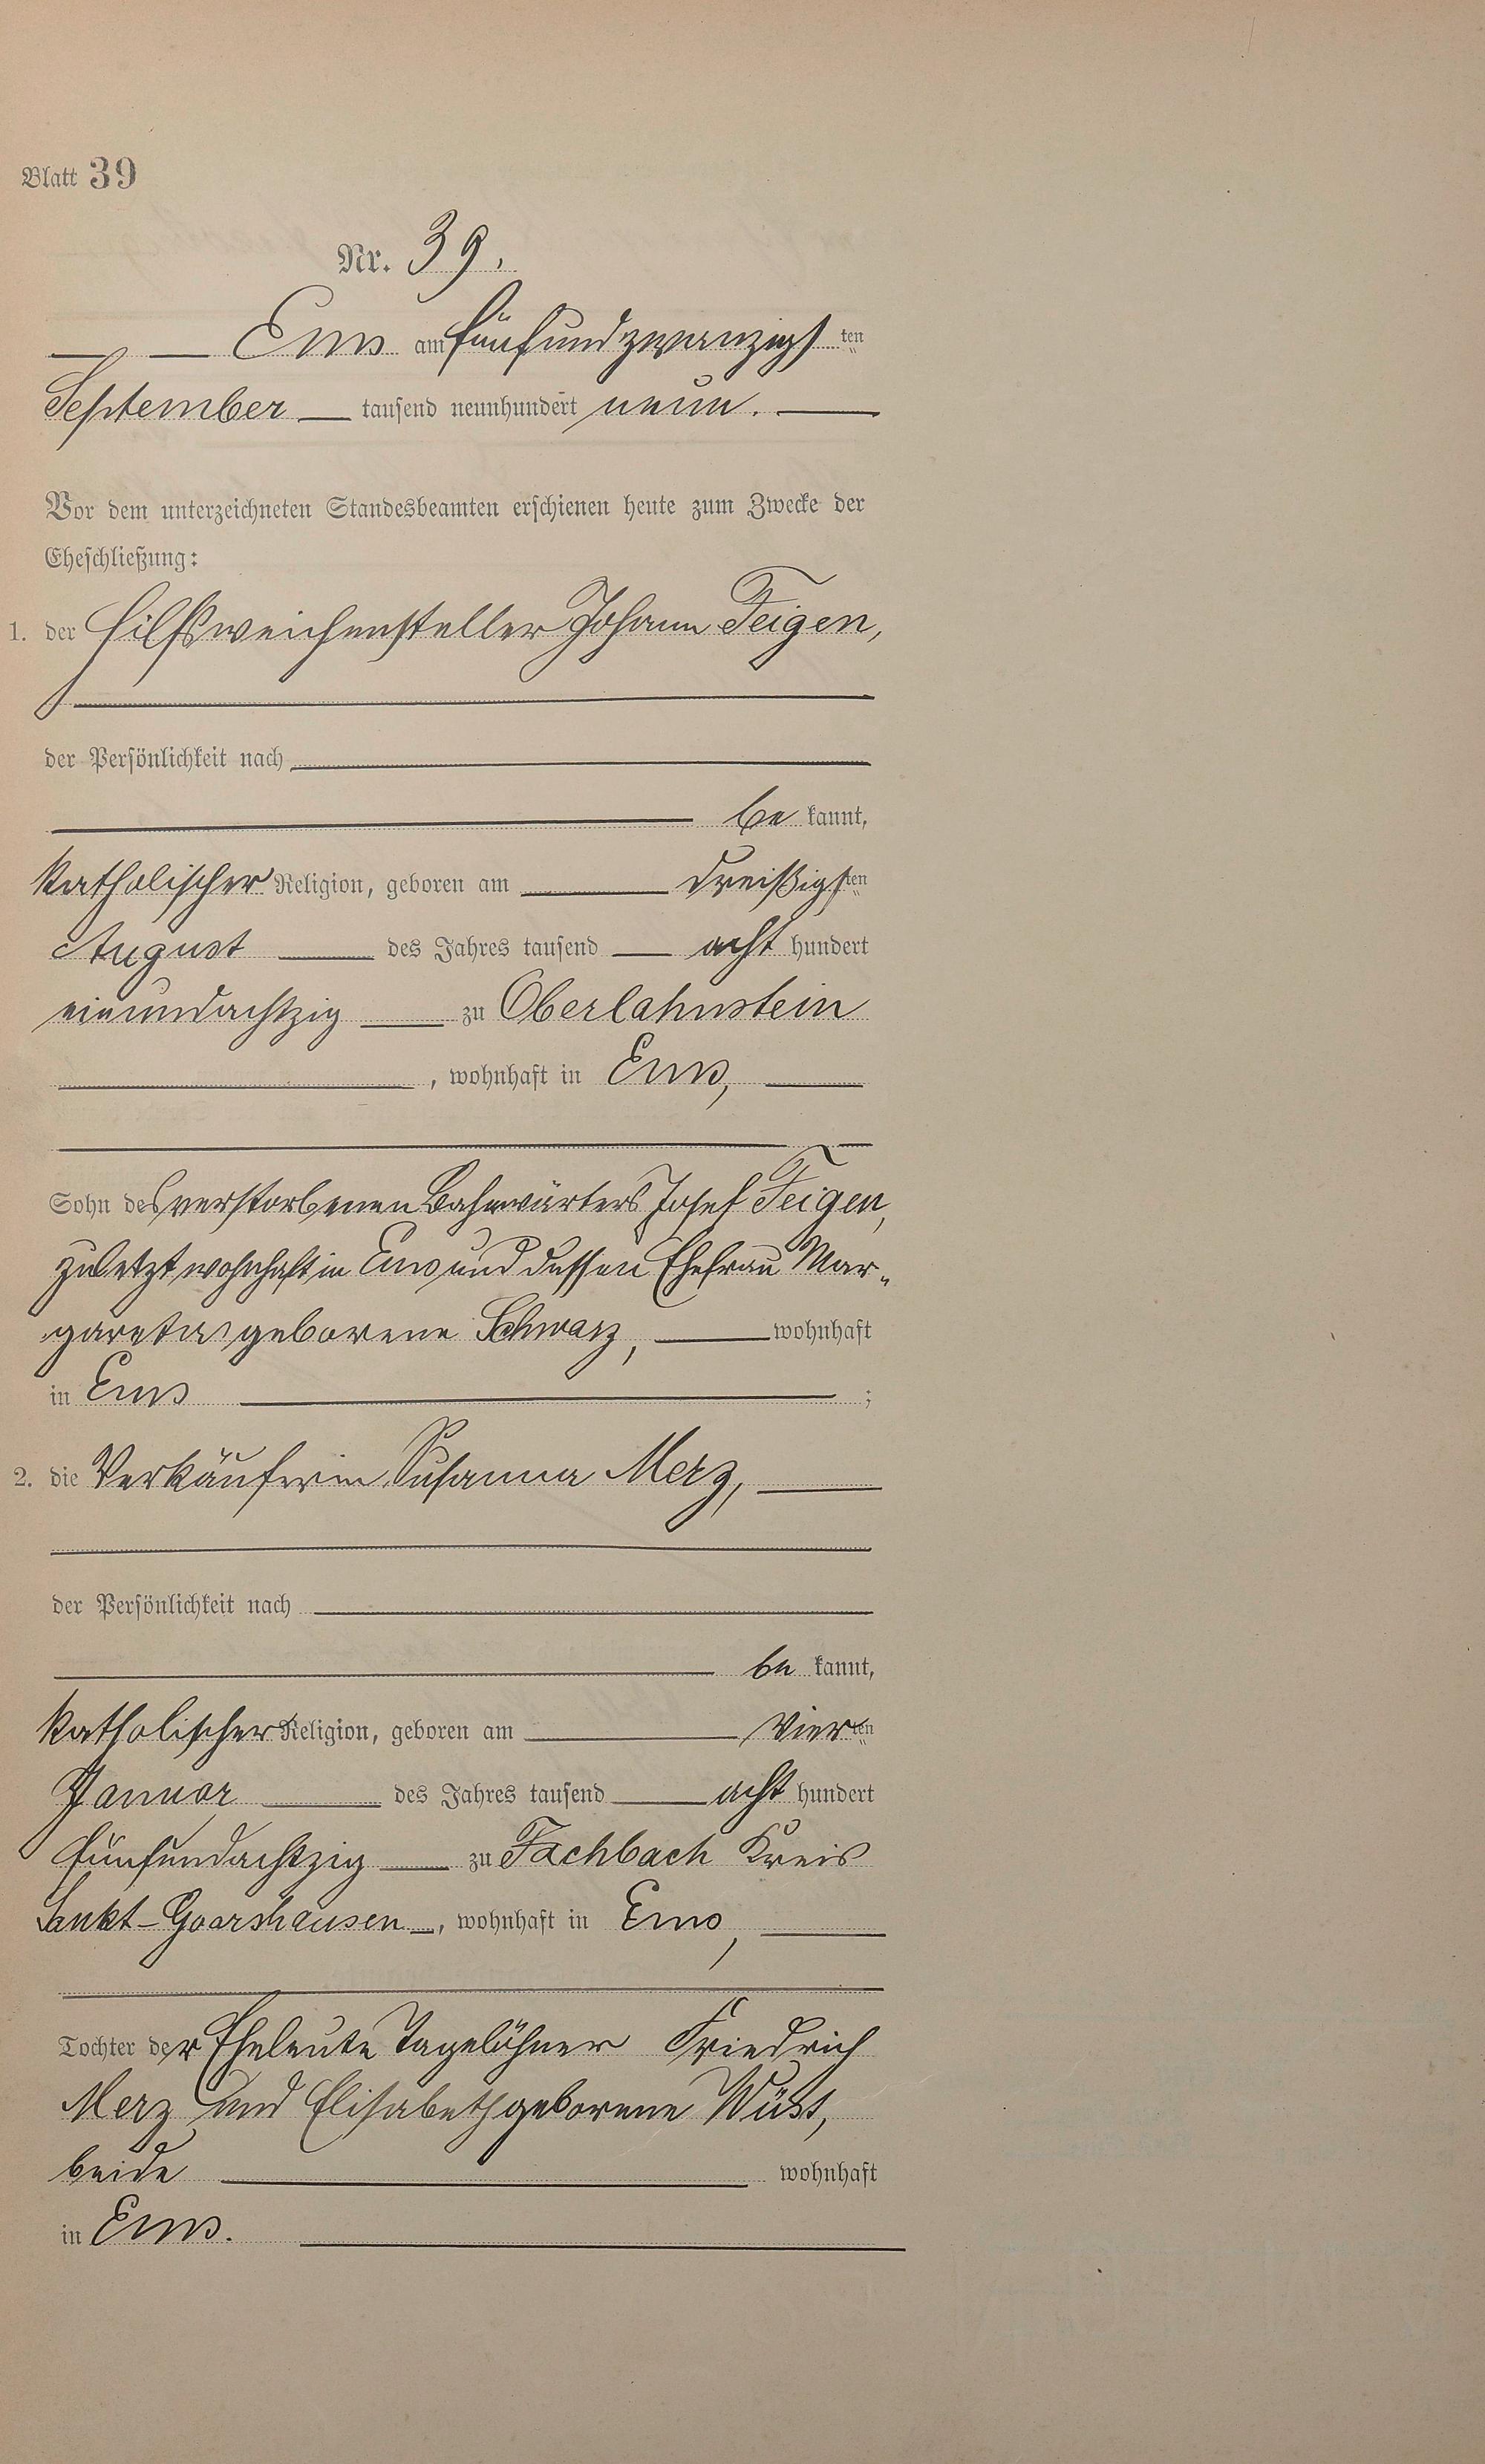 Blatt 39
Nr. 39.
Ems am fünfundzwanzigsten
September tausend neunhundert neun.
Vor dem unterzeichneten Standesbeamten erschienen heute zum Zwecke der
Eheschließung:
1. der Hilfsweichensteller Johann Feigen,
der Persönlichkeit nach
be kannt,
katholischer Religion, geboren am dreißigsten
August des Jahres tausend acht hundert
einundachtzig zu Oberlahnstein
, wohnhaft in Ems,
Sohn des verstorbenen Bahnwärters Josef Feigen,
zuletzt wohnhaft in Ems und dessen Ehefrau Mar-
gareta geborene Schwarz, wohnhaft
in Ems ;
2. die Verkäuferin Susanna Merz,
der Persönlichkeit nach
be kannt,
katholischer Religion, geboren am vierten
Januar des Jahres tausend acht hundert
fünfundachtzig zu Fachbach Kreis
Sankt-Goarshausen, wohnhaft in Ems,
Tochter der Eheleute Tagelöhner Friedrich
Merz und Elisabeth geborene Wüst,
beide wohnhaft
in Ems.